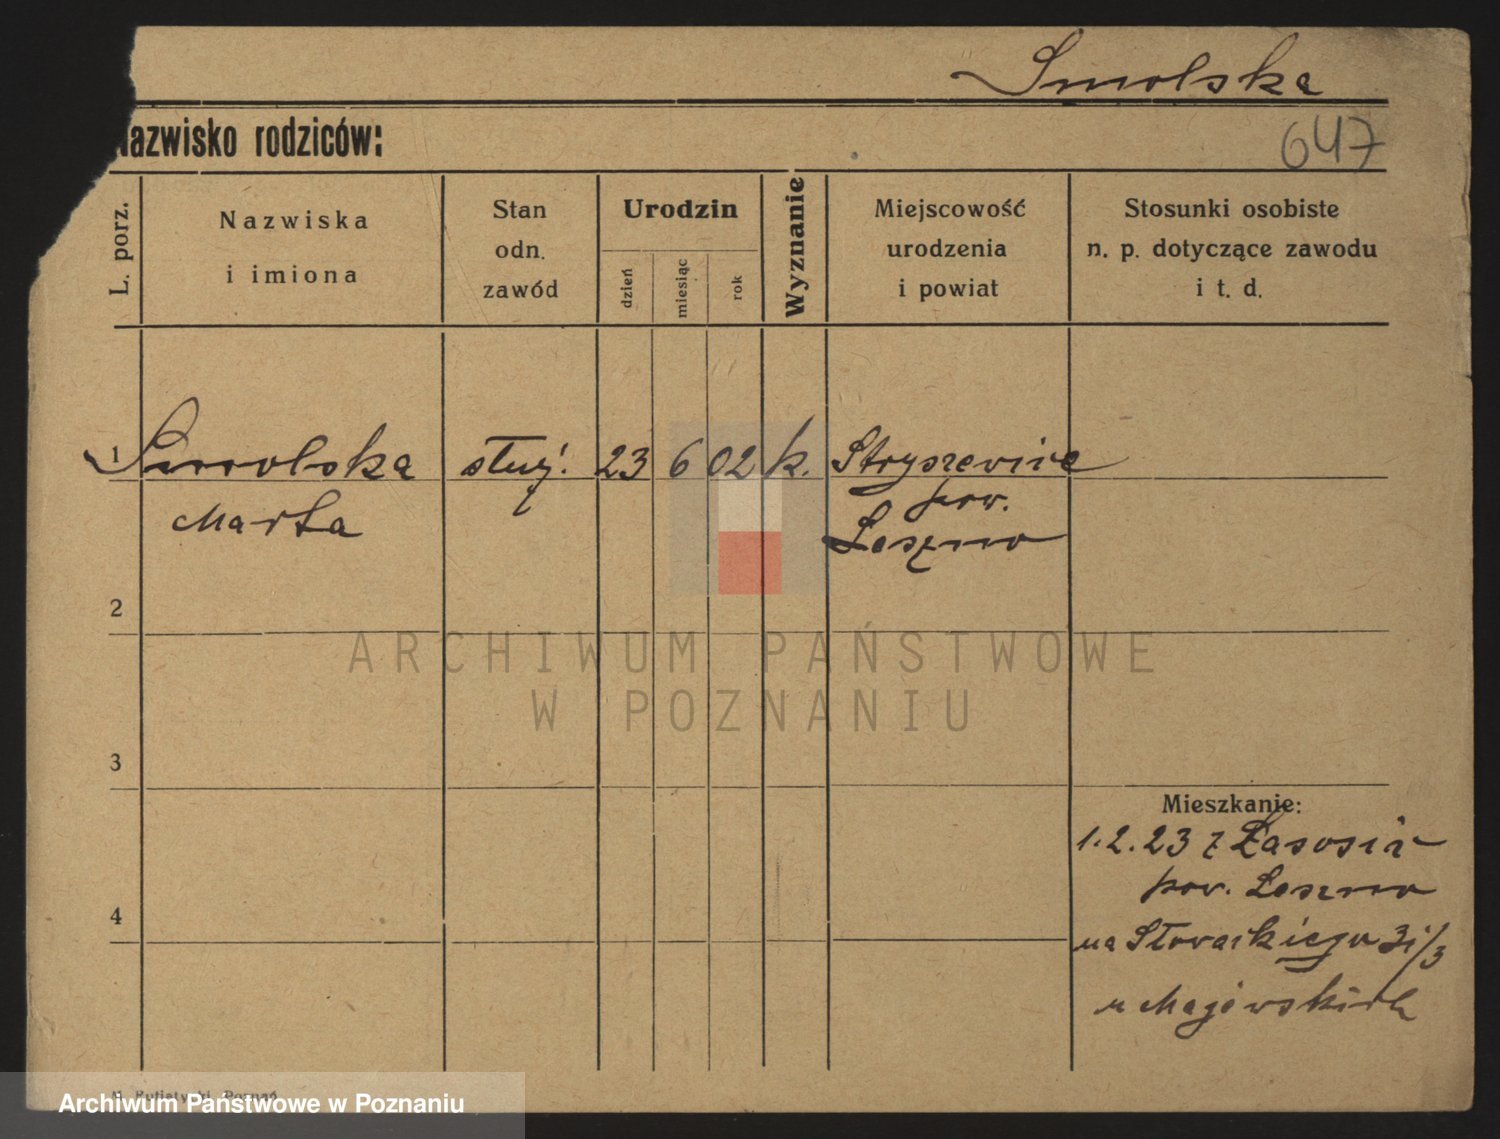 Smolska
Nazwisko rodziców:
647
L. porz.
Nazwiska
i imiona
Stan
odn.
zawód
Urodzin
dzień
miesiąc
rok
Wyznanie
Miejscowość
urodzenia
i powiat
Stosunki osobiste
n. p. dotyczące zawodu
i t. d.
1 Smolska służ. 23 6 02 k. Stryszewice
Marta pow.
Leszno
2
3
4
Mieszkanie:
1.2.23 z
pow. Leszno
na Słowackiego 31/3
u Majewskich
ARCHIWUM PAŃSTWOWE
W POZNANIU
Poznań
Archiwum Państwowe w Poznaniu